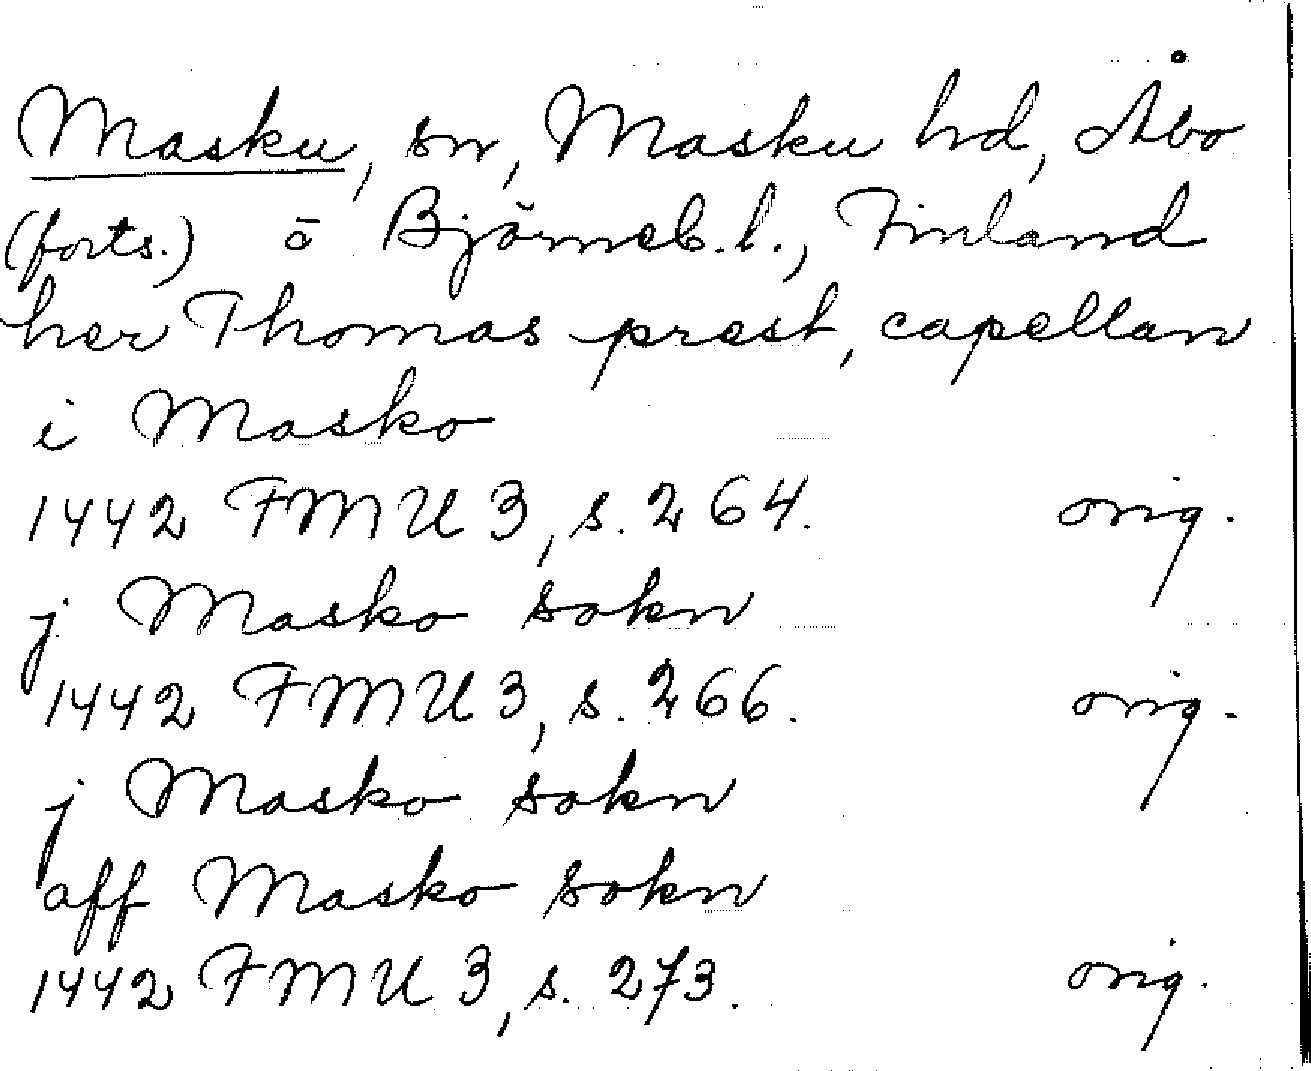 Masku, sn, Masku hd, Åbo
(forts.) o Björneb. l., Finland
her Thomas prest, capellan
i Masko
1442 FMU 3, s. 264. orig.
j Masko sokn
1442 FMU 3, s. 266. orig.
j Masko sokn
aff Masko sokn
1442 FMU 3, s. 273. orig.